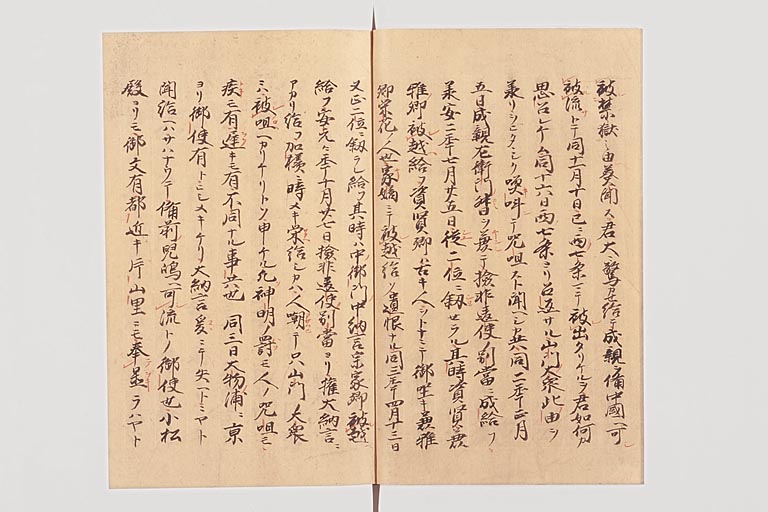 被禁獄之由奏聞ス君大ニ驚思給テ成親ヲ備中國ヘ可
被流トテ同十一月十日已ニ西七条マテ被出タリケルヲ君如何カ
思召シケム同十六日西七条ヨリ召返サル山門大衆此由ヲ
承リシニタヽシク呪咀スト聞ヘシ
五日成親左衛門督ヲ兼テ検非違使ノ別當ニ成給フ
承安二年七月廿五日従二位ニ叙セラル其時資賢兼
雅卿被越給フ資賢卿ハ古キ人ヲトナニテ御坐キ兼雅
卿栄花ノ人也家嫡ニテ被越給ソ遺恨ナル同三年四月十三日
又正二位ニ叙シ給フ其時ハ中御門中納言宗家卿被越
給フ安元々年十一月廿七日検非違使別當ヨリ権大納言ニ
アカリ給フ加様ニ時メキ栄給シカハ人嘲テ只山門ノ大衆
ニハ被咀ヘカリケリトソ申ケル凡神明ノ罰モ人ノ呪咀モ
疾モ有遅キモ有不同ナル事共也 同三日大物浦ニ京
ヨリ御使有トテヒシメキケリ大納言爰ニテ失ヘトニヤト
聞給ハサハナクテ備前兒嶋ヘ可流トノ御使也小松
殿ヨリモ御文有都近キ片山里ニモ奉置ラハヤト